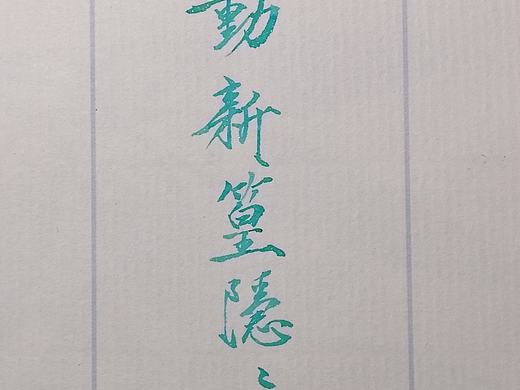 動新篁隱〻